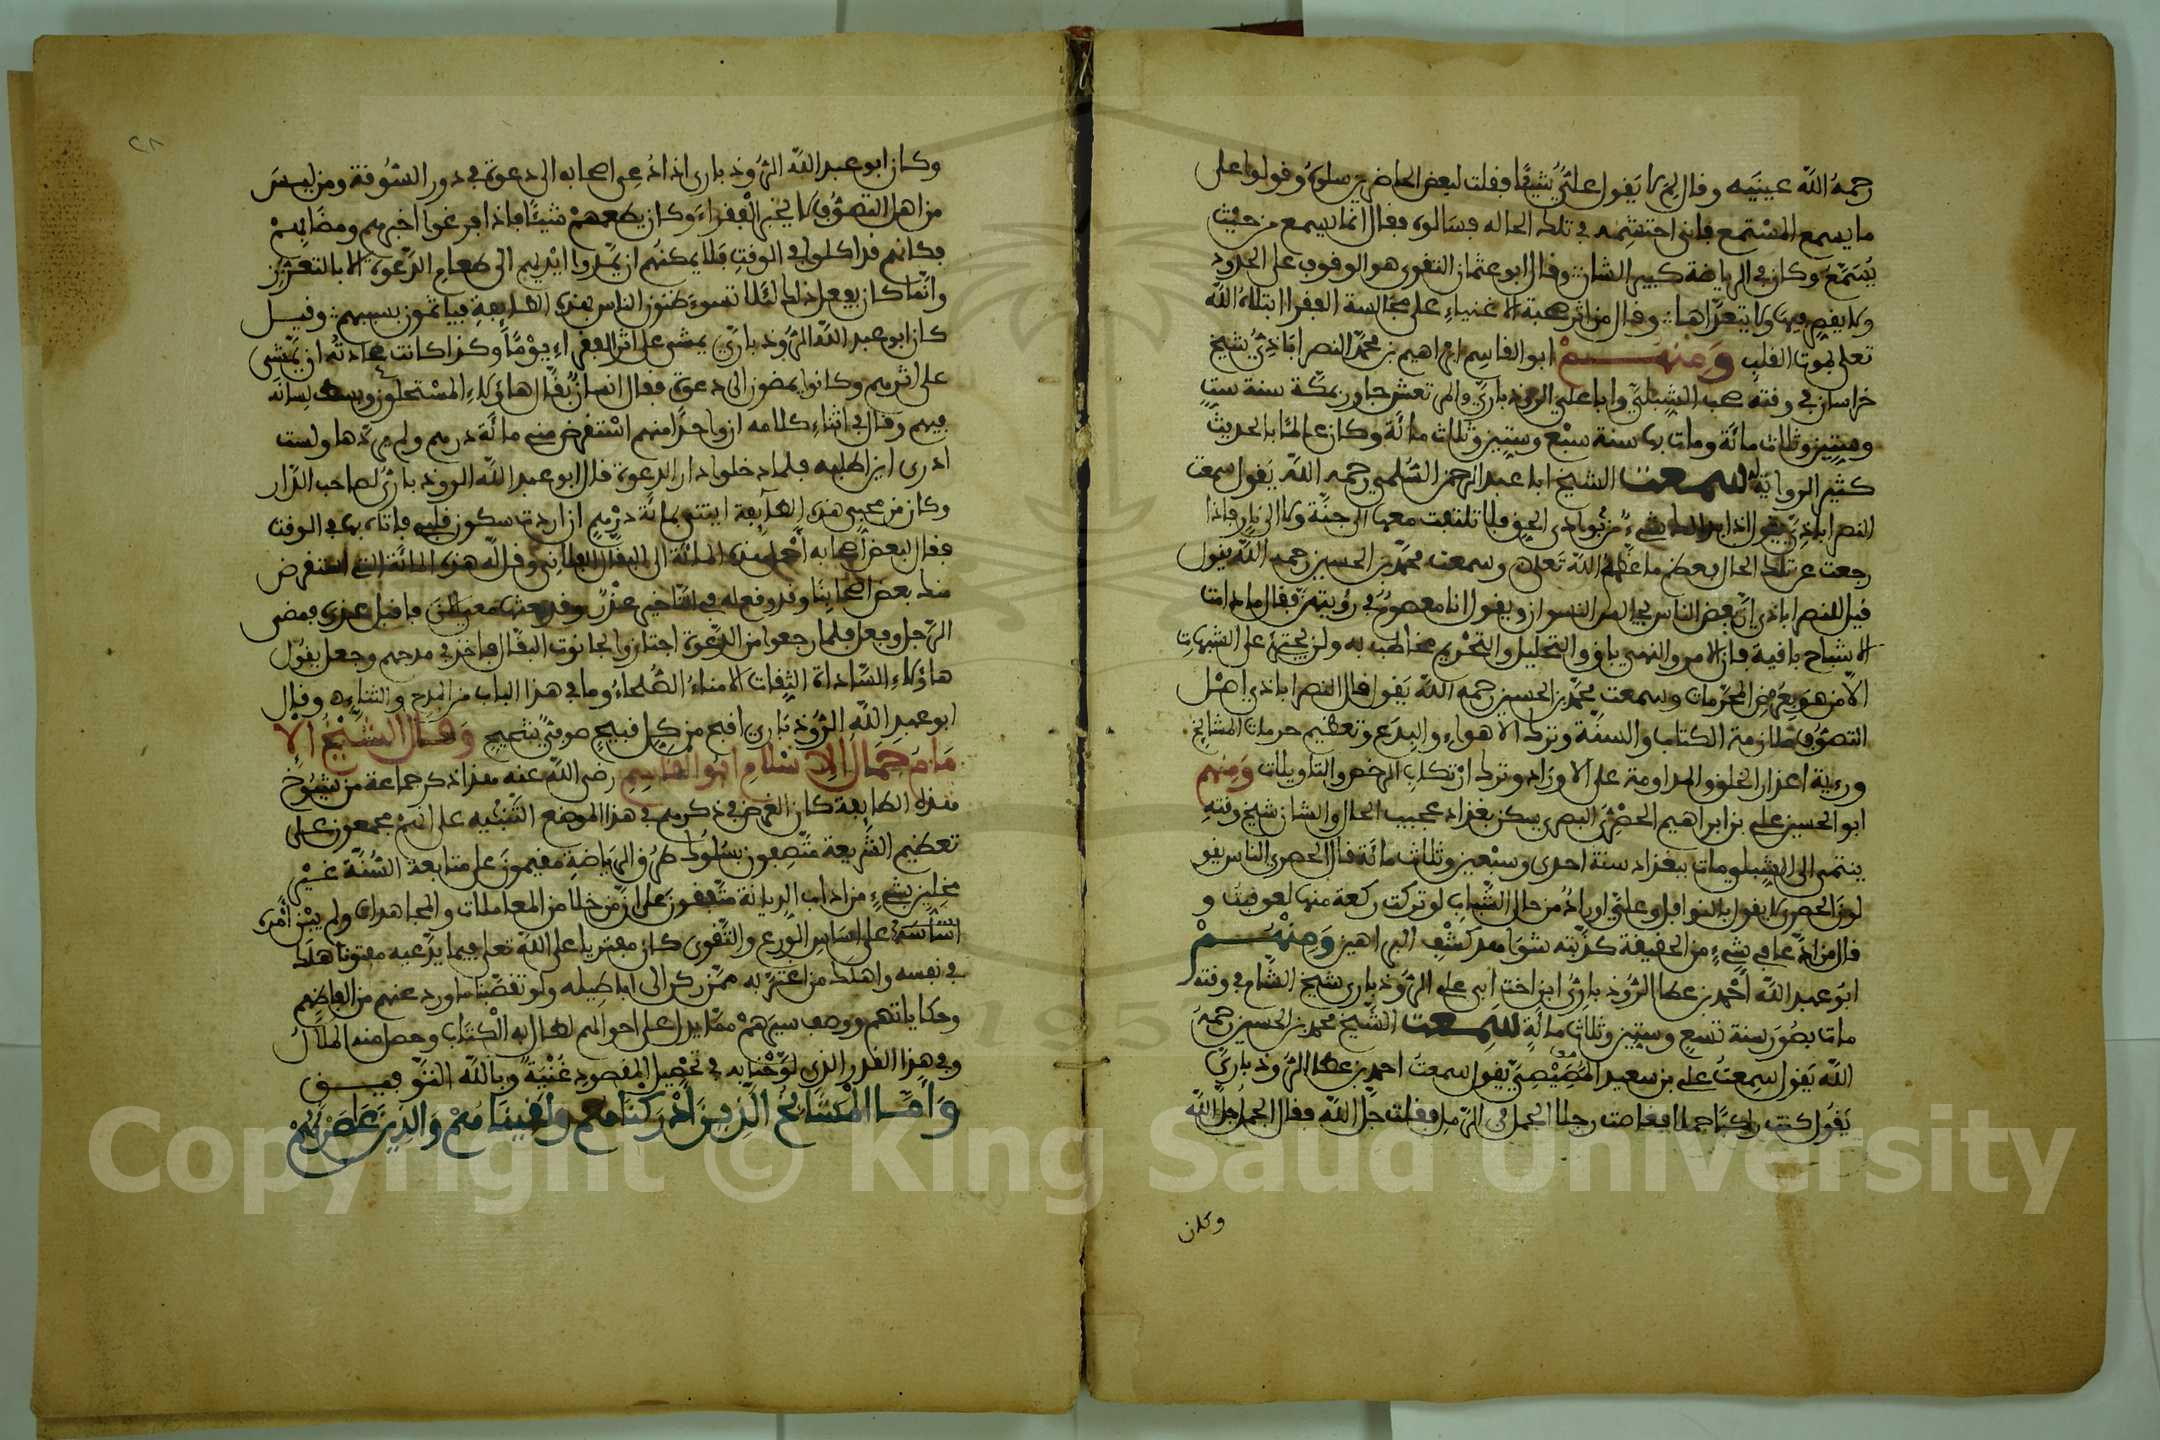 رحمهُ اللَّه عينيه وقال لِمَ لا يقول علىّ شيئا فقلت لبعض الحاضرين سلوهُ وقولوا على
ما يسمع المسْتمع فإني احتشمه في تلك الحاله فسَالوه فقال انما يسمع من حيْث
يُسَمَّعُ وكان في الرياضة كبير الشان وقال ابو عثمان التقوى هو الوقوف على الحدود
ولا يقصر فيها ولا يتعدّاها وقال من اثر صحبة الاغنياءِ على مجالسة الفقرا ابتلاهُ اللَّه
تعلى بموت القلب وَمنهــمْ ابو القاسم ابراهيم بن محمّد النصراباذيُّ شيخ
خراسان في وقته صحب الشبليّ وابا علي الروذباريّ والمرتعش جاور بمكّة سنة ستٍ
وستِين وثلاث مائة ومات بها سنة سبْع وستِين وثلاث مائة وكان عالمًا بالحديث
كثير الرواية سمعت الشيخ ابا عبد الرحمن السُّلمي رحمه اللَّه يَقول سمعت
النصراباذيّ يقول اذا بدا لك شيءٌ من بوادي الحق فلا تلتفت معها الى جنّة ولا الى نار فاذا
رجعت عن تلك الحال فعظم ما عظّمه اللَّه تعلى وسمعت محمّد بن الحسين رحمه اللَّه يقول
قيل للنصراباذي انّ بعض الناس يجالس النسوان ويقول انا معصومٌ في رؤيتهنّ فقال ما دامت
الاشباح باقية فإن الامر والنهي باق والتحليل والتحْريم مخاطب به ولن يجترئ على الشبهات
الّا من هو يعرض المحرّمات وسمعت محمّد بن الحسين رحمه اللَّه يَقول قال النصراباذي اصْل
التصوُّف ملازمة الكتاب والسنَّة وترك الاهواءِ والبدَع وتعظيم حرمات المشائخ
ورءية اعذار الخلق والمداومة على الاوراد وترك ارْتكاب الرخص والتاويلات وَمنهم
ابو الحسين علي بن ابراهيم الحصْريّ البصري سكن بغداد عجيب الحال والشان شيخ وقته
ينتمى الى الشبلي ومات ببغداد سنة احدى وسبْعين وثلاث مائة قال الحصري الناس يقو
لون الحصري لا يقول بالنوافل وعليّ اورادٌ من حال الشّباب لو تركت ركعة منها لعوقبت و
قال من ادّعا في شيءٍ من الحقيقة كذّبته شواهد كشْف البراهين وَمنهــمْ
ابُو عبد اللَّه احْمد بن عطا الرُّوذباريُّ ابن اخت ابي علي الرُّوذباري شيخ الشّام في وقته
مات بصُور سنة تسع وستِين وثلاث مائةٍ سمعت الشّيخ محمد بن الحسين رحمه
اللَّه يَقول سمعتُ علي بن سعيد المصِّيْصيّ يَقول سمعتُ احمد بن عطا الرُّوذباريّ
يَقُول كنت راكبًا جملا فغاصت رجلا الجمل في الرّمل فقلت جلّ اللَّه فقال الجمل جلّ اللَّه
وكان
٢٨
وكان ابو عبد اللَّه الرُّوذباري اذا دُعي اصحابه الى دعوة في دور السُّوقة ومن ليسَ
من اهل التصوُّف لا يخبر الفقراءَ وكان يطعمهمْ شيئًا فإذا فرغوا اخبرهم ومضَا بهمْ
فكانهم قد اكلوا في الوقتِ فلا يمكنهم ان يَمدّوا ايْديهم الى طعام الدّعوة الا بالتعزّز
وانّما كان يفعل ذلك لئلّا تسوءَ ظنون الناس بهذه الطائفة فياثمون بسببهم وقيــل
كان ابو عبد اللَّه الرُّوذباريّ يمشي على اثر الفقراءِ يوْمًا وكذا كانت عادتُه ان يمْشي
على اثرهم وكانوا يمضون الى دعوة فقال انسان بقّال هاؤلاءِ المسْتحلّون وبسط لسانه
فيهم وقال في اثناءِ كلامه ان واحدًا منهم اسْتقرض مني مائة درهم ولم يردّها ولست
ادري اين اطلبه فلما دخلوا دار الدعوة قال ابو عبد اللَّه الروذباريُّ لصاحب الدّار
وكان من محبي هذه الطائفة ايتني بمائة درْهم ان اردت سكون قلبي فاتاه بها في الوقت
فقال لبعض اصحابه احْمل هذه المائة الى البقّال الفلاني وقل له هذه المائة التي استقرض
منك بعض اصحابنا وقد وقع له في التاخير عذْر وقد بعثها معي الآن فاقبل عذره فمضى
الرّجل وفعل فلما رجعوا من الدّعوة اجتازوا بحانوت البقّال فاخذ في مدحهم وجعل يقُول
هاؤلاءِ السّاداة الثّقات الامناءُ الصُّلحاءُ وما في هذا الباب من المدح والثناءِ وقال
ابو عبد اللَّه الرُّوذباري اقبح من كل قبيح صوفيٌّ شحيح وَقــال الشيْخ الإ
مَامُ جمَال الإسْلام ابُو القاسِم رضى اللَّه عنه هذا ذكر جماعة من شيُوخ
هذه الطائفة كان الغرض في ذكرهم في هذا الموضع التّنْبيه على انهمْ مجمعون على
تعظيم الشّريعة متّصفون بسلوك طرُق الريَاضةِ مقيمون على متابعة السُّنَّة غيْر
مخلين بشيءٍ من اداب الديانة متّفقون على ان من خلا من المعاملات والمجاهدات ولم يبْن امْره
اساسَه على اساس الورع والتّقوى كان مفتريا على اللَّه تعلى فيما يدّعيه مفتونا هلك
في نفسه واهلك من اغتَرَّ به ممّن ركن الى اباطيله ولو تقصّيْنا ما ورد عنهم من الفاظهم
وحكاياتهم ووصف سيرهمْ ممّا يدل على احوالهم لطال به الكتاب وحصل منه الملالُ
وفي هذا القدر الذي لوّحْنا به في تحْصيل المقصود غنْيةٌ وباللَّه التوفيــق
وَامّــا المشَائخُ الّذِينَ ادْرَكْنَاهم ولقينَاهُمْ والذِينَ عَاصَرْنَهُمْ